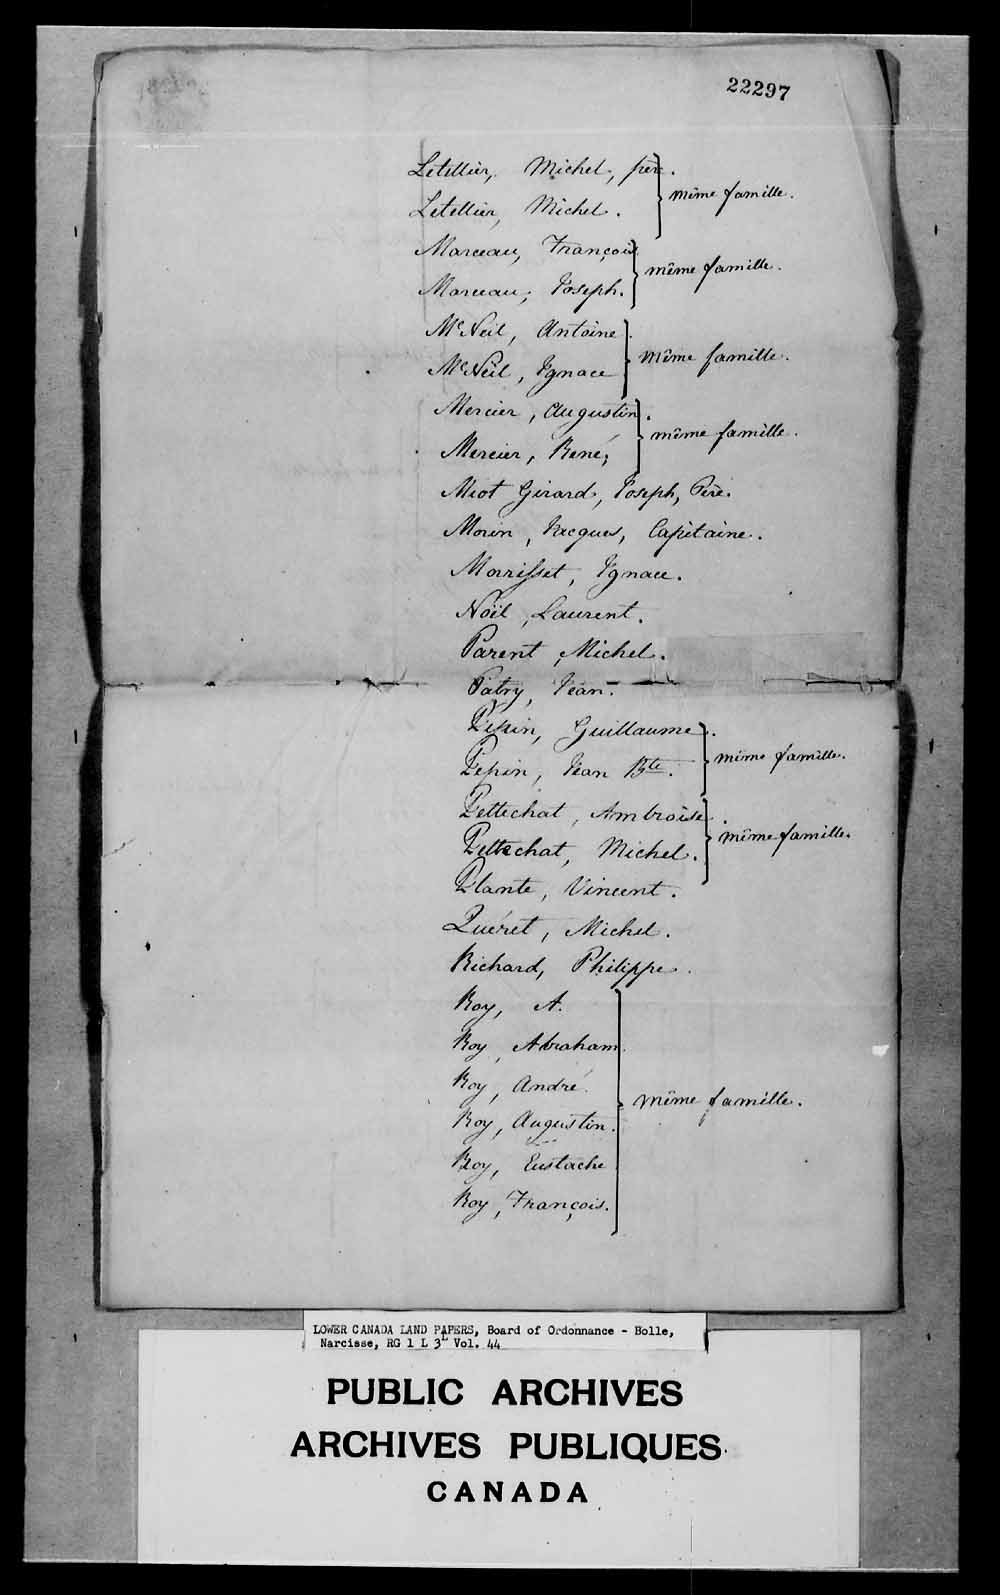 22297
Letellier, Michel, père.
même famille.
Letellier, Michel.
Marceau, François
même famille.
Marceau, Joseph.
McNeil, Antoine.
même famille.
McNeil, Ignace
Mercier, Augustin.
même famille.
Mercier, René,
Miot Girard, Joseph, Père.
Morin, Jacques, Capitaine.
Morrisset, Ignace.
Noël, Laurent.
Parent, Michel.
Patry, Jean.
Pepin, Guillaume.
même famille.
Pepin, Jean Bte.
Pettechat, Ambroise.
même famille.
Pettechat, Michel.
Plante, Vincent.
Quéret, Michel.
Richard, Philippe.
Roy, A.
Roy, Abraham.
Roy, André.
même famille.
Roy, Augustin.
Roy, Eustache
Roy, François.
LOWER CANADA LAND PAPERS, Board of Ordonnance - Bolle,
Narcisse, RG 1 L 3L Vol. 44
PUBLIC ARCHIVES
ARCHIVES PUBLIQUES
CANADA